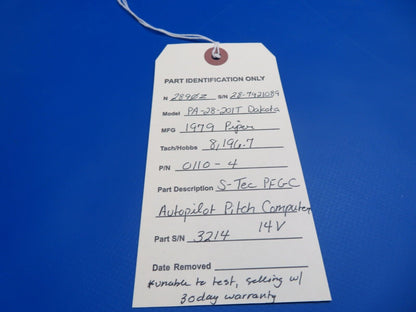 PART IDENTIFICATION ONLY
N 2890Z S/N 28-7921089
Model PA-28-201T Dakota
MFG 1979 Piper
Tach/Hobbs 8,196.7
P/N 0110-4
Part Description S-Tec PFGC
Autopilot Pitch Computer
Part S/N 3214 14V
Date Removed
*unable to test, selling w/
30day warranty